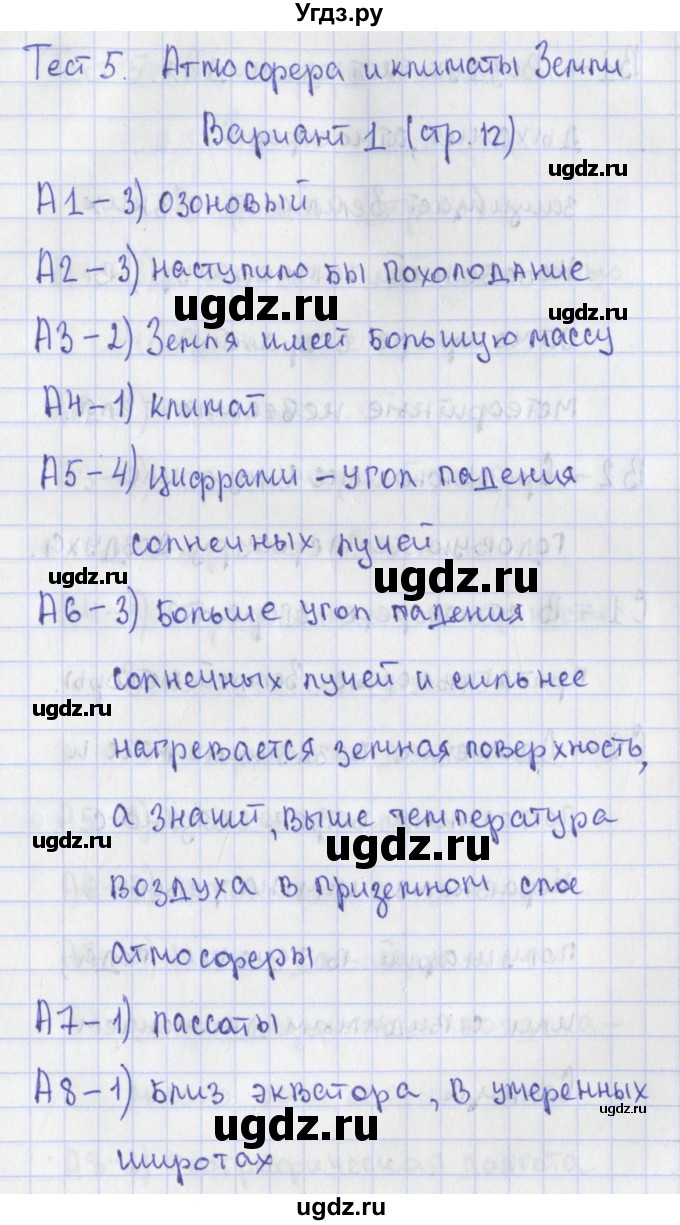 Угдз.ру
Тест 5. Атмосфера и климаты Земли
Вариант 1 (стр.12)
ugdz.ru
А1-3) озоновый
ugdz.ru
А2-3) наступило бы похолодание
ugdz.ru
А3-2) Земля имеет большую массу
А4-1) климат
ugdz.ru
А5-4) Цифрами - угол падения
солнечных лучей
ugdz.ru
ugdz.ru
А6-3) Больше угол падения
солнечных лучей и сильнее
ugdz.ru
нагревается земная поверхность,
а значит, выше температура
ugdz.ru
ugdz.ru
воздуха в приземном слое
атмосферы
А7-1) пассаты
ugdz.ru
А8-1) Близ экватора, в умеренных
ugdz.ru
широтах
ugdz.ru